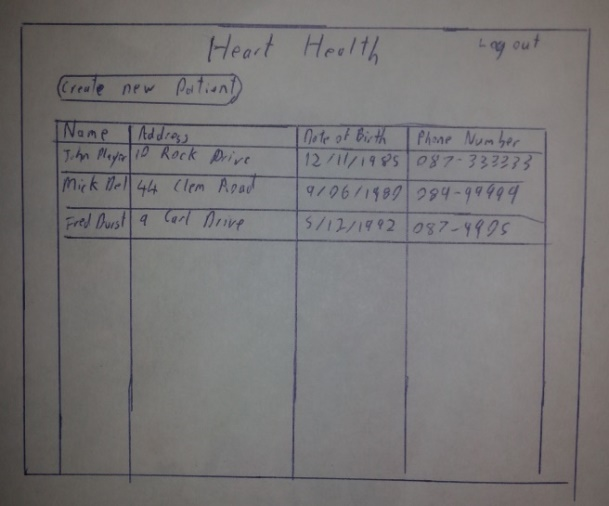 Heart Health Log out
Create new Patient
Name Address Date of Birth Phone Number
John Player 10 Rock Drive 12/11/1985 087-333333
Mick Del 44 Clem Road 9/06/1980 089-99999
Fred Durst 9 Carl Drive 5/12/1992 087-9995